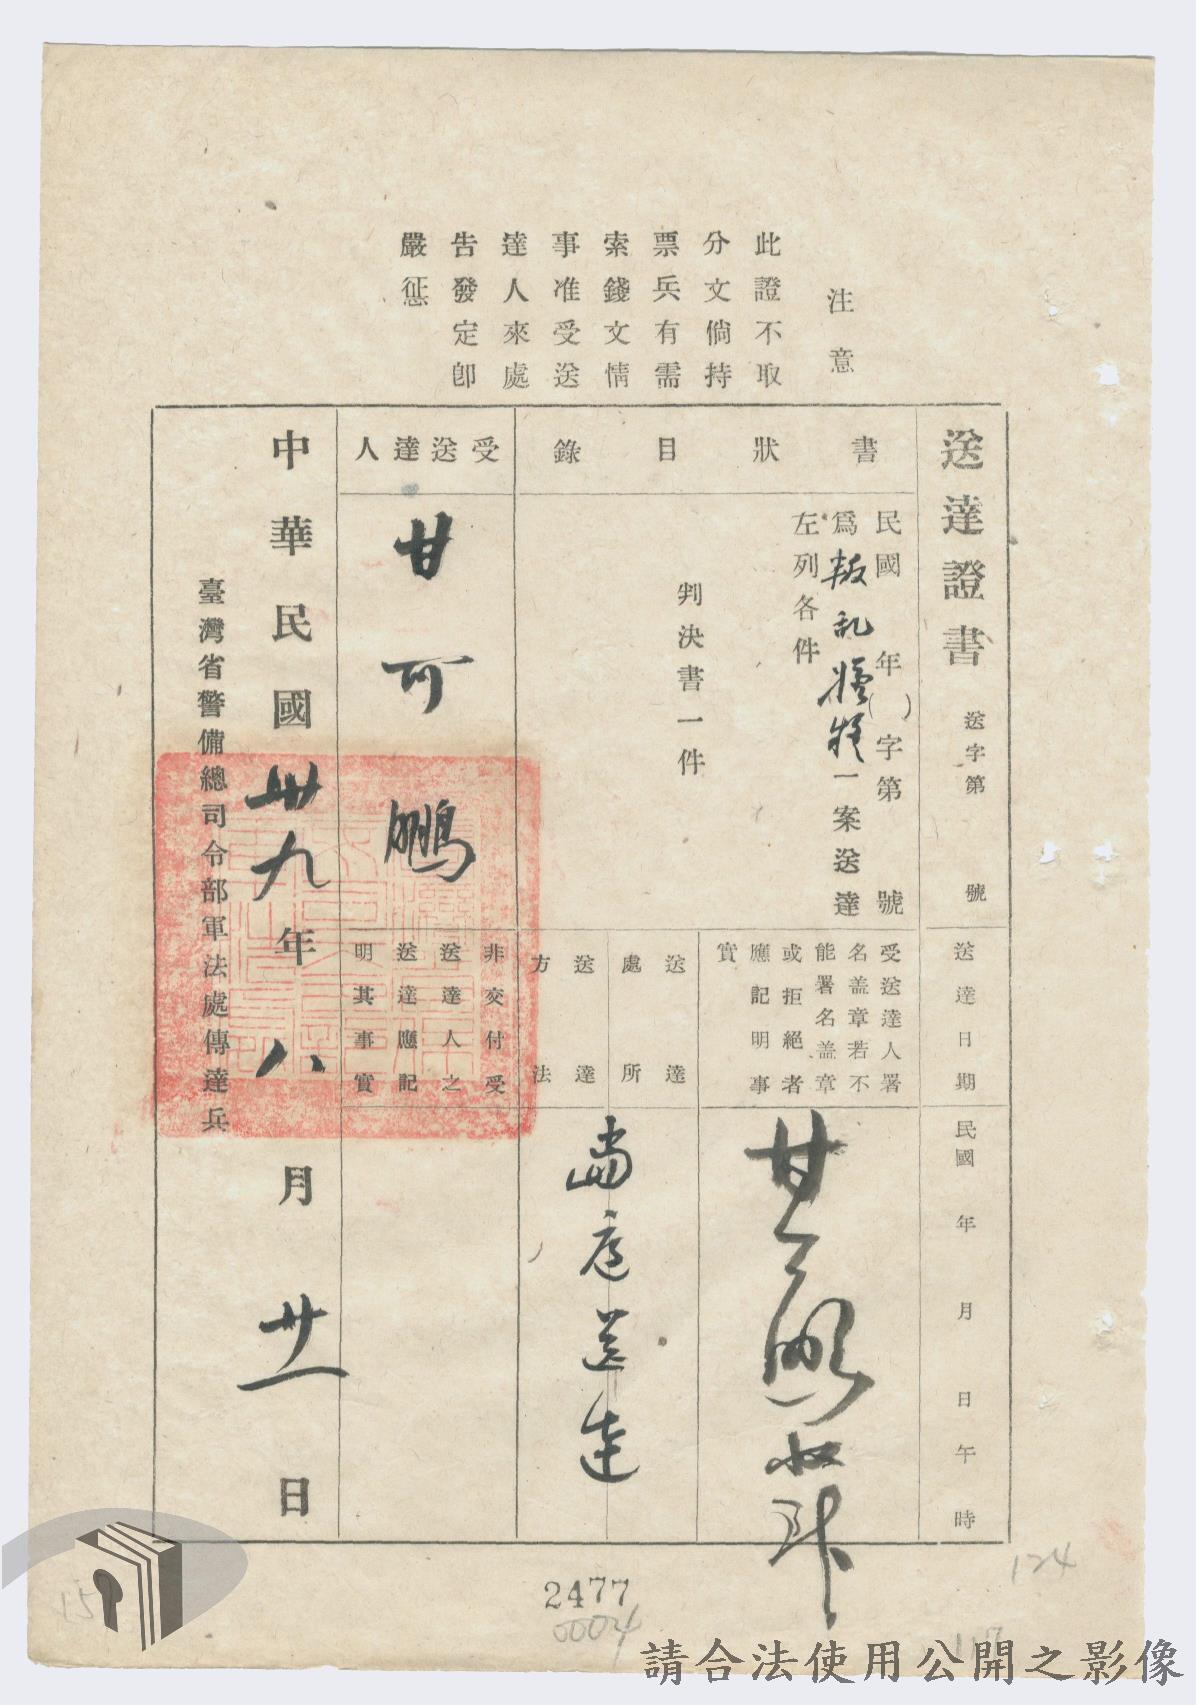 注意
此證不取
分文倘持
票兵有需
索錢文情
事准受送
達人來處
告發定即
嚴懲
送達證書
送字第 號
送達日期
民國 年 月 日午 時
書狀目錄
民國 年( )字第 號
為叛乱嫌疑一案送達
左列各件
判決書一件
受送達人署
名蓋章若不
能署名蓋章
或拒絕者
應記明事
實
送達處所
送達方法
當庭送達
受送達人
甘可鵬
非交付受
送達人之
送達應記
明其事實
中華民國卅九年八月廿一日
臺灣省警備總司令部軍法處傳達兵
2477
0004
124
請合法使用公開之影像